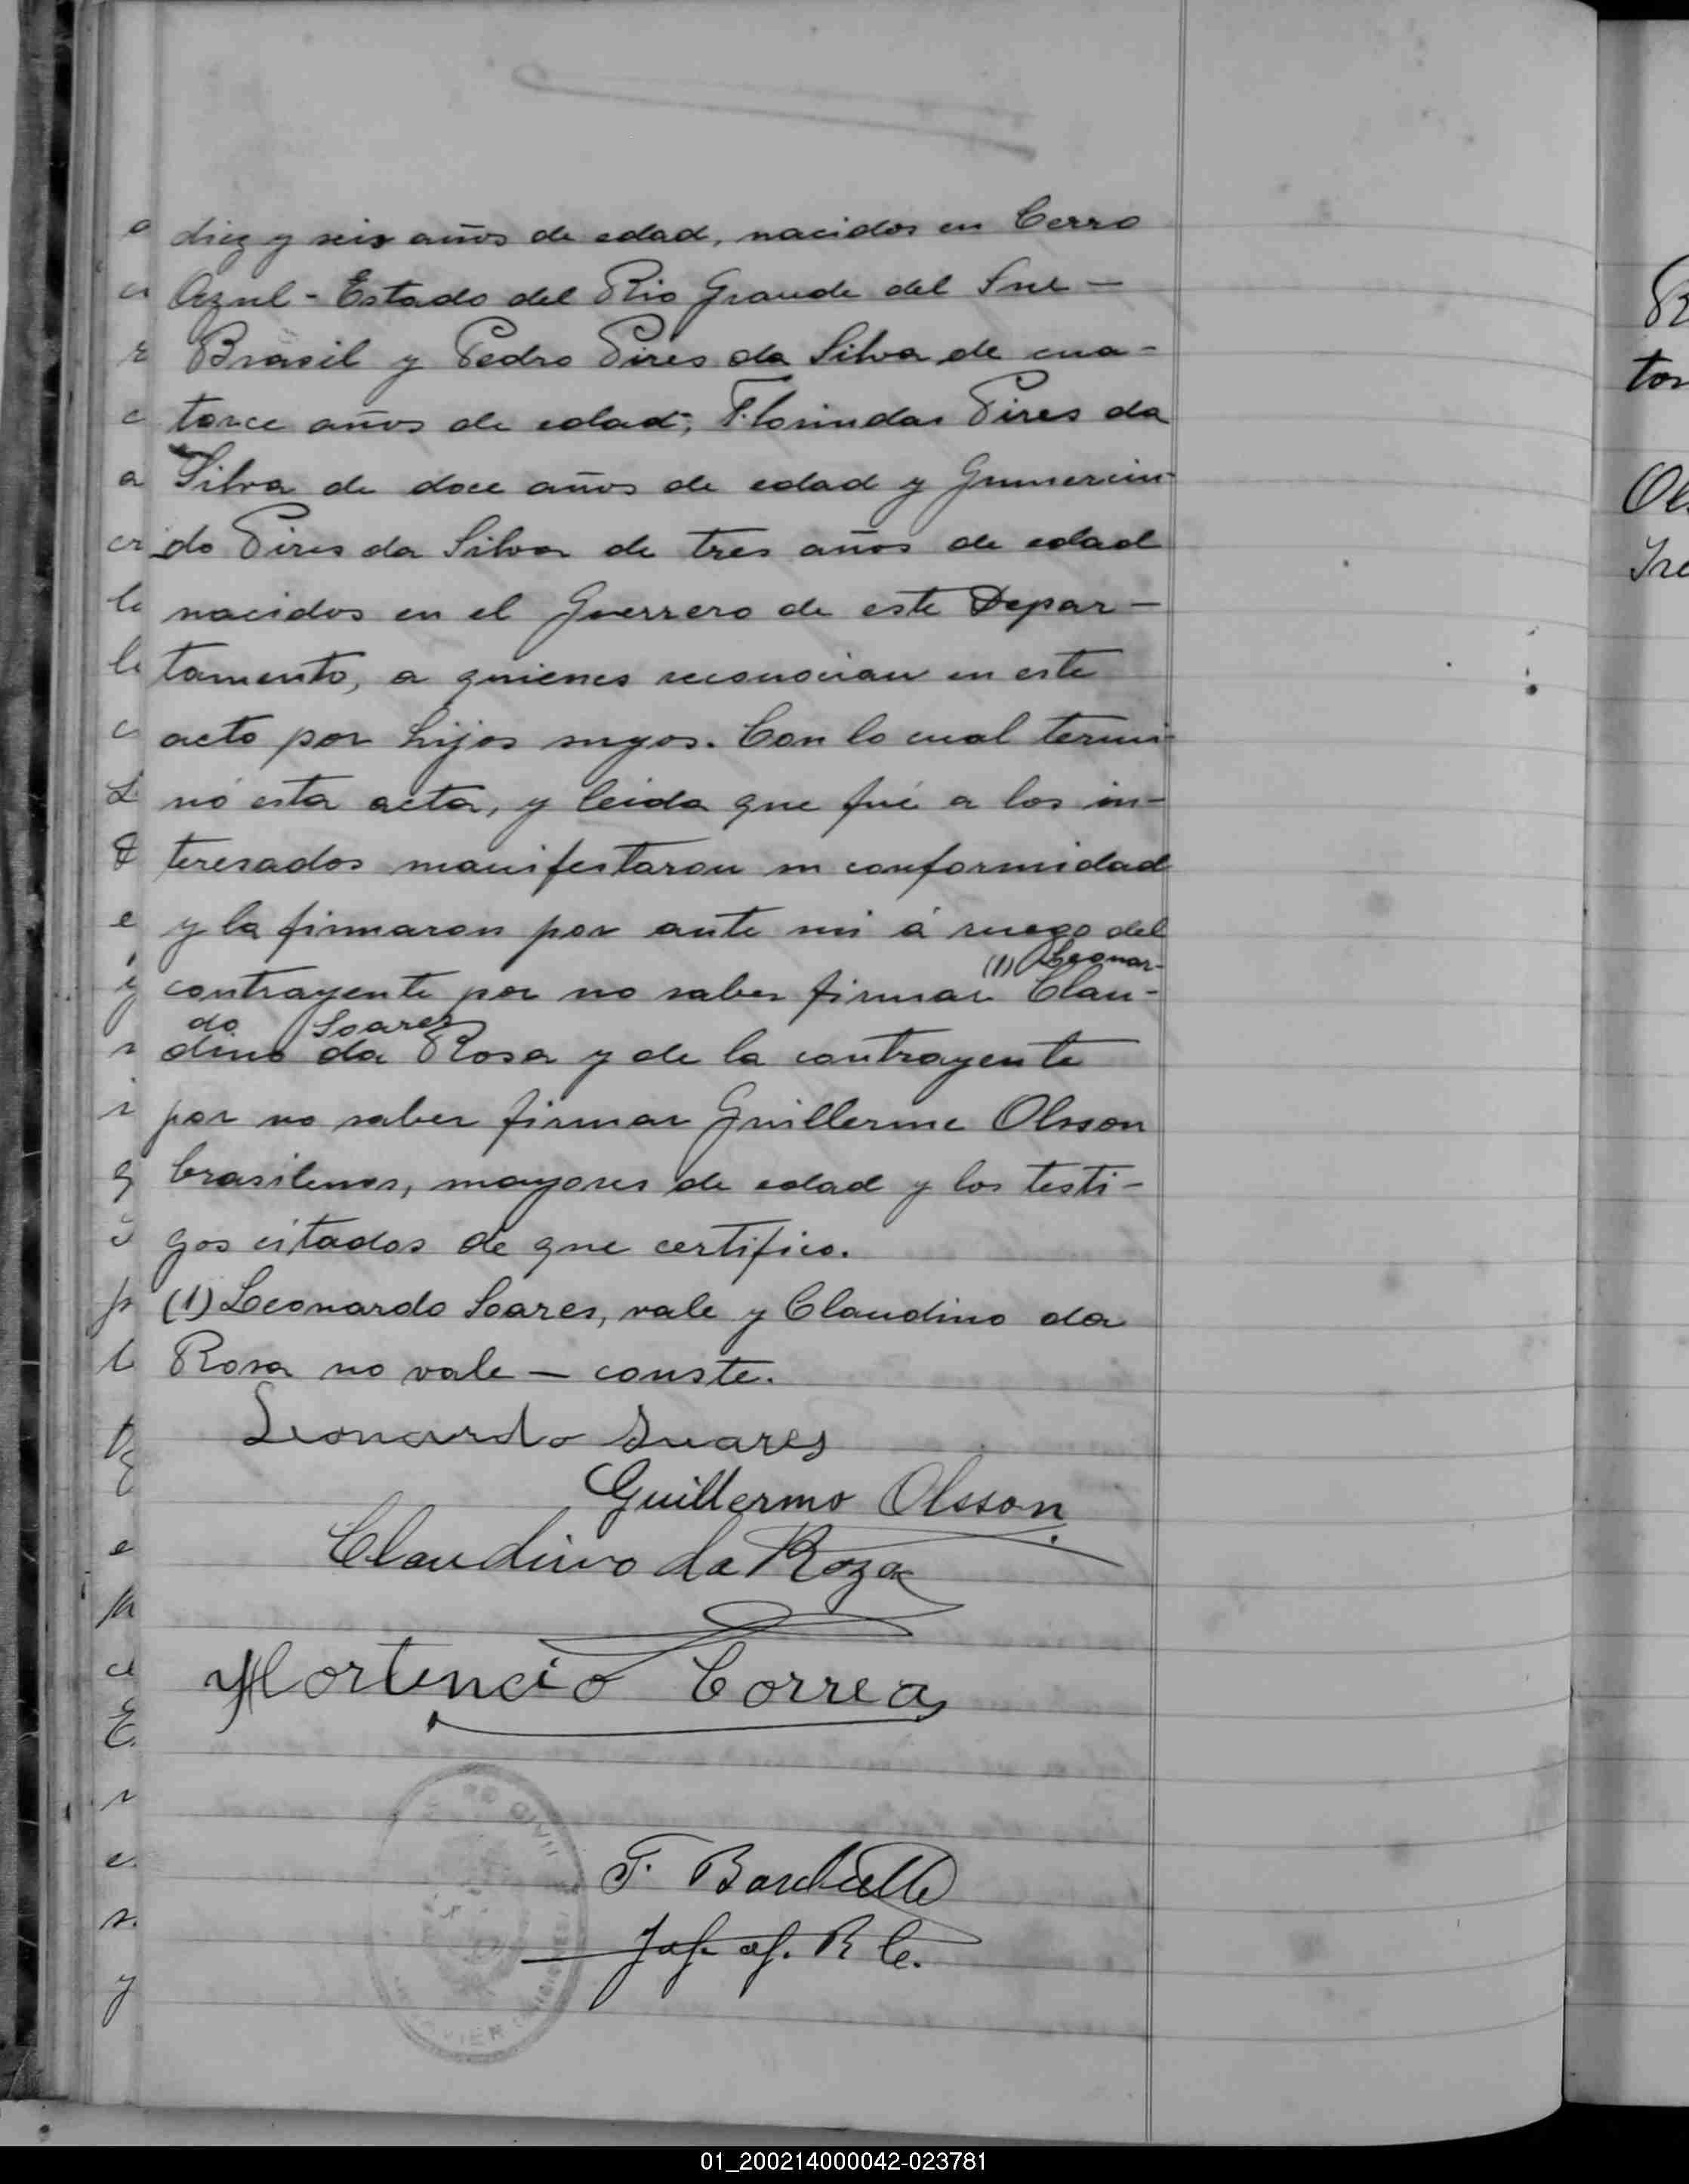 diez y seis años de edad, nacidos en Cerro
Azul - Estado del Rio Grande del Sur -
Brasil y Pedro Pires da Silva de cua-
torce años de edad; Florindas Pires da
Silva de doce años de edad y Gumercin-
do Pires da Silva de tres años de edad
nacidos en el Guerrero de este Depar-
tamento, a quienes reconocian en este
acto por hijos suyos. Con lo cual termi-
nó esta acta, y leida que fué a los in-
teresados manifestaron su conformidad
y la firmaron por ante mi á ruego del
(1) Leonar-
contrayente por no saber firmar Clau-
do Soares
dino da Rosa y de la contrayente
por no saber firmar Guillerme Olsson
brasilenos, mayores de edad y los testi-
gos citados de que certifico.
(1) Leonardo Soares, vale y Claudino da
Rosa no vale - conste.
Leonardo Suares
Guillermo Olsson
Claudino da Roza
Hortencio Correa
F.
Jefe of. R C.
01_200214000042-023781